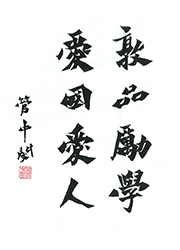 敦品勵學
愛國愛人
管中閔